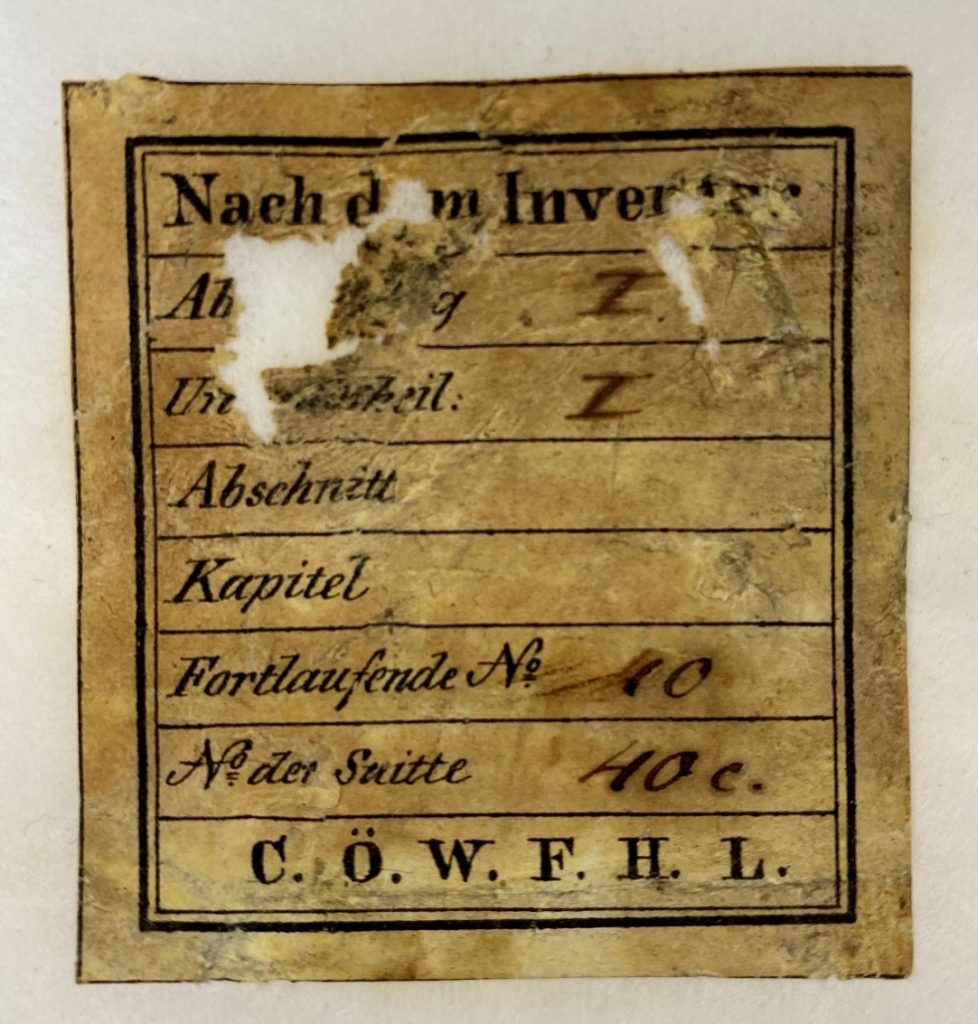 Nach dem Inventar
I.
I
Abschnitt
Kapitel
Fortlaufende No 10
No der Suitte 40 c.
C. Ö. W. F. H. L.